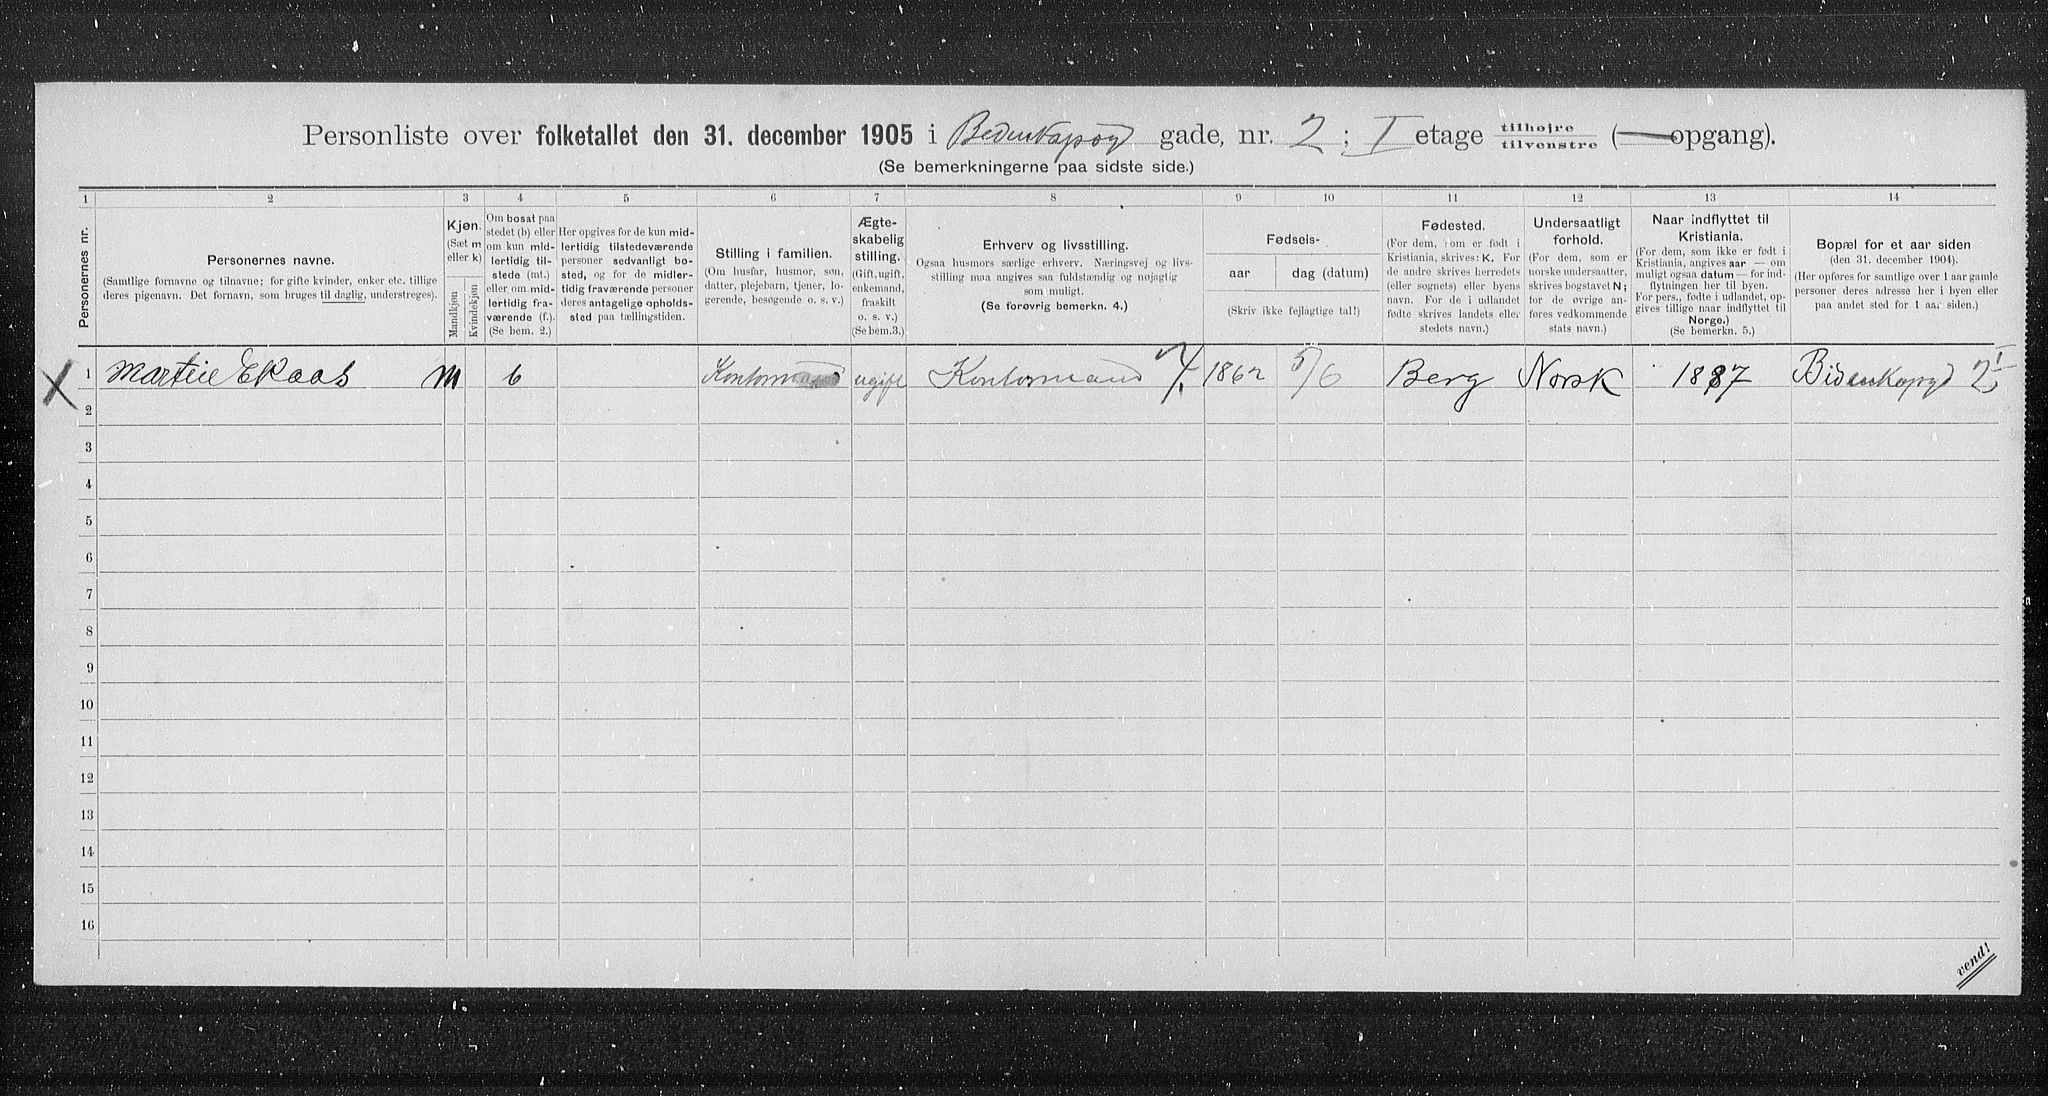 Personliste over folketallet den 31. december 1905 i Bedenkapsgd gade, nr. 2; I etage tilhøjre tilvenstre (— opgang).
(Se bemerkningerne paa sidste side.)
1 2 3 4 5 6 7 8 9 10 11 12 13 14
Personernes nr.
Personernes navne.
(Samtlige fornavne og tilnavne; for gifte kvinder, enker etc. tillige deres pigenavn. Det fornavn, som bruges til daglig, understreges).
Kjøn.
(Sæt m eller k)
Mandkjøn
Kvindekjøn
Om bosat paa stedet (b) eller om kun midlertidig tilstede (mt.) eller om midlertidig fraværende (f.). (Se bem. 2.)
Her opgives for de kun midlertidig tilstedeværende personer sedvanligt bosted, og for de midlertidig fraværende personer deres antagelige opholdssted paa tællingstiden.
Stilling i familien.
(Om husfar, husmor, søn, datter, plejebarn, tjener, logerende, besøgende o. s. v.)
Ægteskabelig stilling.
(Gift, ugift, enkemand, fraskilt o. s. v.)
(Se bem. 3.)
Erhverv og livsstilling.
Ogsaa husmors særlige erhverv. Næringsvej og livsstilling maa angives saa fuldstændig og nøjagtig som muligt.
(Se forøvrig bemerkn. 4.)
Fødsels-
aar
dag (datum)
(Skriv ikke fejlagtige tal!)
Fødested.
(For dem, som er født i Kristiania, skrives: K. For de andre skrives herredets (eller sognets) eller byens navn. For de i udlandet fødte skrives landets eller stedets navn.)
Undersaatligt forhold.
(For dem, som er norske undersaatter, skrives bogstavet N; for de øvrige anføres vedkommende stats navn.)
Naar indflyttet til Kristiania.
(For dem, som ikke er født i Kristiania, angives aar — om muligt ogsaa datum — for indflytningen her til byen. For pers., fødte i udlandet, opgives tillige naar indflyttet til Norge.)
(Se bemerkn. 5.)
Bopæl for et aar siden
(den 31. december 1904).
(Her opføres for samtlige over 1 aar gamle personer deres adresse her i byen eller paa andet sted for 1 aar siden.)
X 1 Ekaas m b Kontormand ugift Kontormand 1862 5/6 Berg Norsk 1887 Bidenkapsgd 2 I
2
3
4
5
6
7
8
9
10
11
12
13
14
15
16
vend!